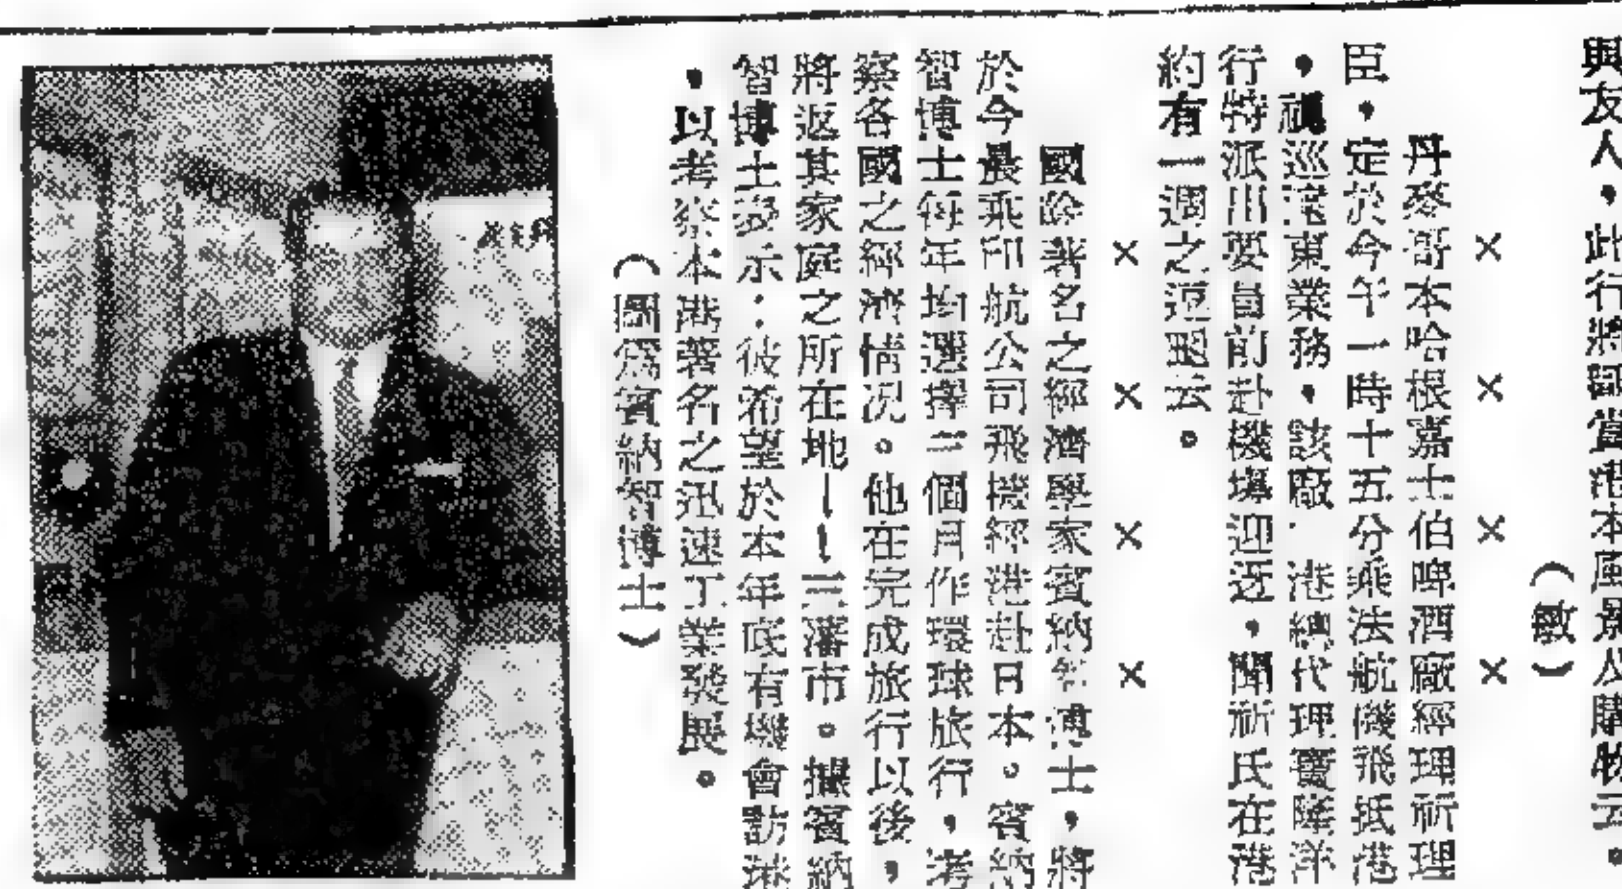 與友人，此行將留當港本風景及購物云。
（敏）
××××
丹麥哥本哈根嘉士伯啤酒廠經理祈理
臣，定於今午一時十五分乘法航機飛抵港
，視巡遠東業務，該廠港總代理慶隆洋
行特派出要員前赴機塲迎迓，聞祈氏在港
約有一週之逗留云。
××××
國際著名之經濟學家賓納智博士，將
於今晨乘印航公司飛機經港赴日本。賓納
智博士每年均選擇三個月作環球旅行，考
察各國之經濟情况。他在完成旅行以後，
將返其家庭之所在地——三藩市。據賓納
智博士表示：彼希望於本年底有機會訪港
，以考察本港著名之迅速工業發展。
（圖爲賓納智博士）